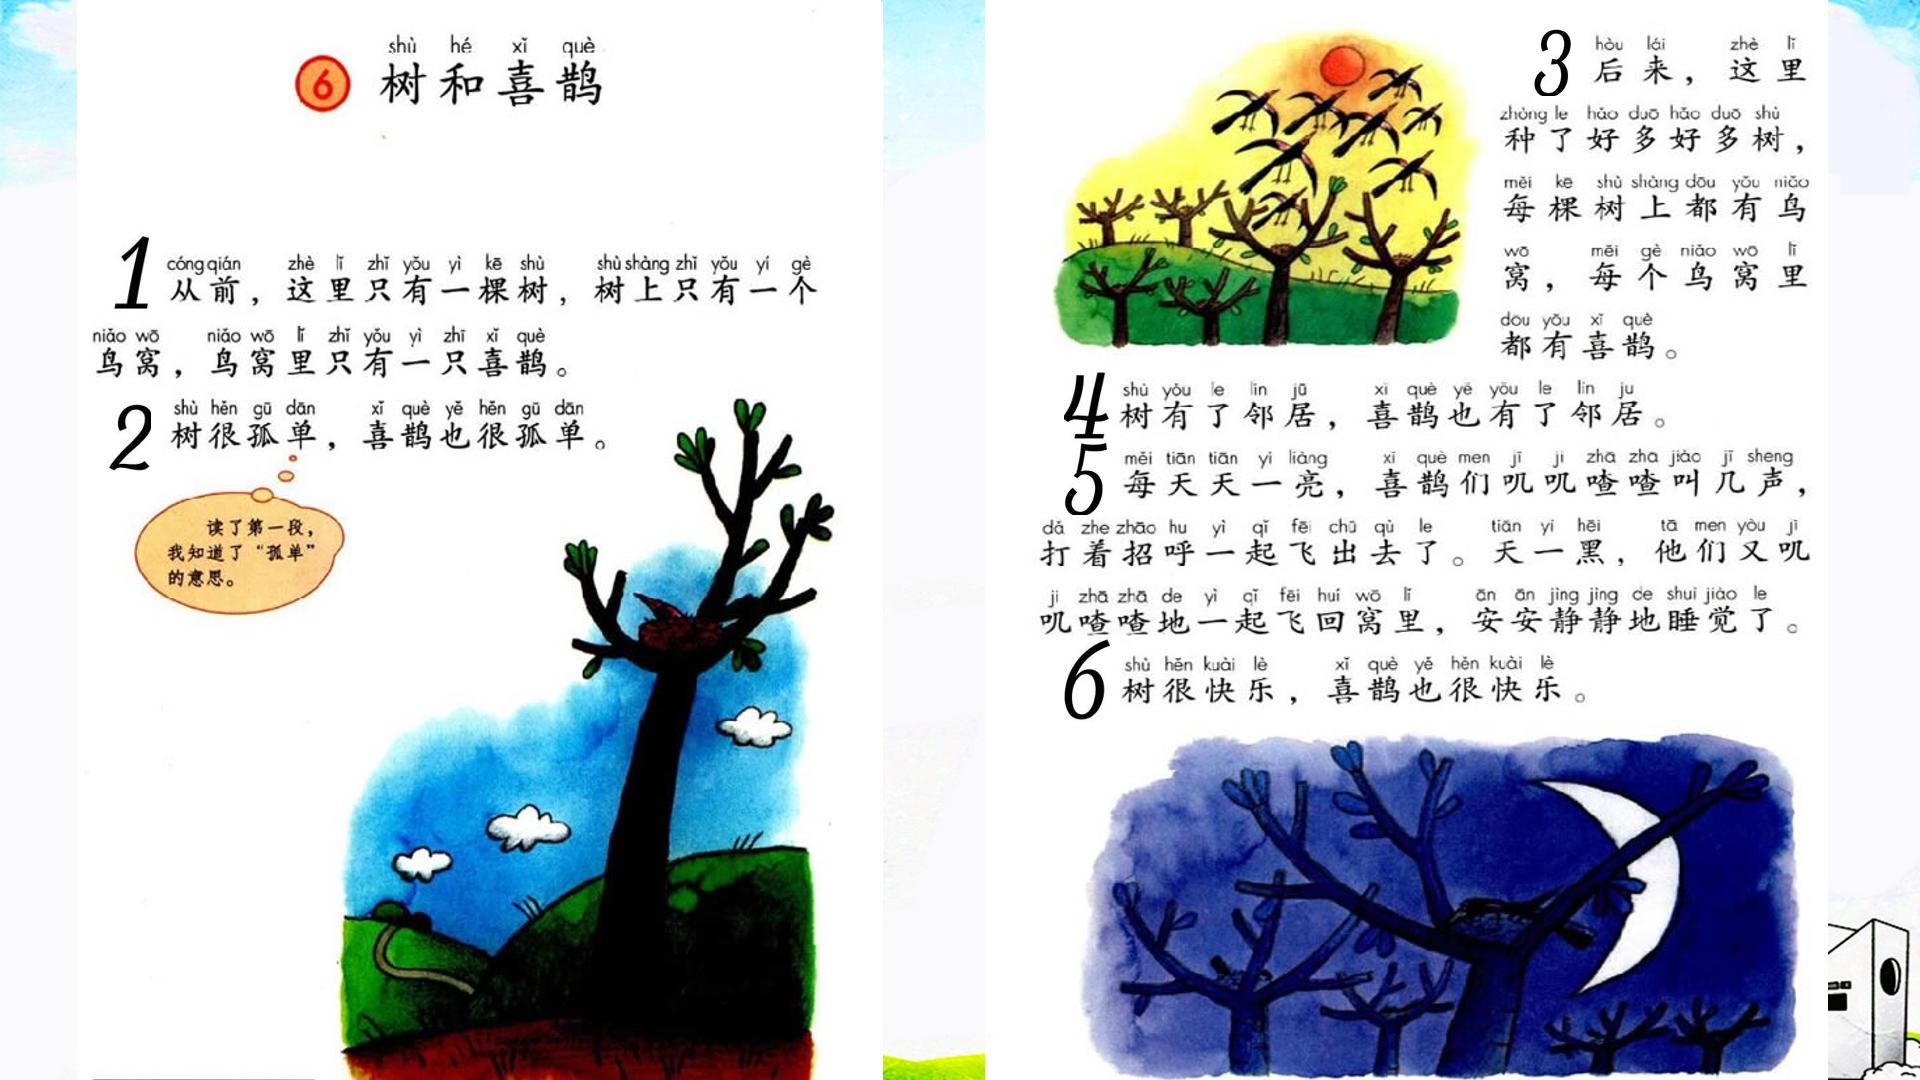 shù hé xǐ què
6 树和喜鹊
1 cóng qián zhè lǐ zhǐ yǒu yì kē shù shù shàng zhǐ yǒu yí gè
从前，这里只有一棵树，树上只有一个
niǎo wō niǎo wō lǐ zhǐ yǒu yì zhī xǐ què
鸟窝，鸟窝里只有一只喜鹊。
2 shù hěn gū dān xǐ què yě hěn gū dān
树很孤单，喜鹊也很孤单。
读了第一段，
我知道了“孤单”
的意思。
3 hòu lái zhè lǐ
后来，这里
zhòng le hǎo duō hǎo duō shù
种了好多好多树，
měi kē shù shàng dōu yǒu niǎo
每棵树上都有鸟
wō měi gè niǎo wō lǐ
窝，每个鸟窝里
dōu yǒu xǐ què
都有喜鹊。
4 shù yǒu le lín jū xǐ què yě yǒu le lín jū
树有了邻居，喜鹊也有了邻居。
5 měi tiān tiān yí liàng xǐ què men jī ji zhā zhā jiào jǐ shēng
每天天一亮，喜鹊们叽叽喳喳叫几声，
dǎ zhe zhāo hu yì qǐ fēi chū qù le tiān yì hēi tā men yòu jī
打着招呼一起飞出去了。天一黑，他们又叽
ji zhā zhā de yì qǐ fēi huí wō lǐ ān ān jìng jìng de shuì jiào le
叽喳喳地一起飞回窝里，安安静静地睡觉了。
6 shù hěn kuài lè xǐ què yě hěn kuài lè
树很快乐，喜鹊也很快乐。